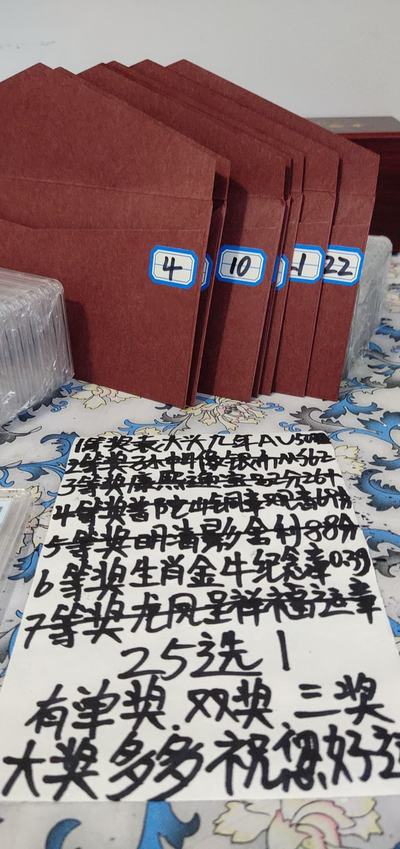 4
10
1
22
1等奖袁大头九年AU50
2等奖孙中山像银币MS62
3等奖康熙通宝
4等奖普陀山铜章双观音69分
5等奖明清影金利88分
6等奖生肖金牛纪念章0.3g
7等奖龙凤呈祥福运章
25选1
有单奖.双奖 三奖
大奖多多祝您好运